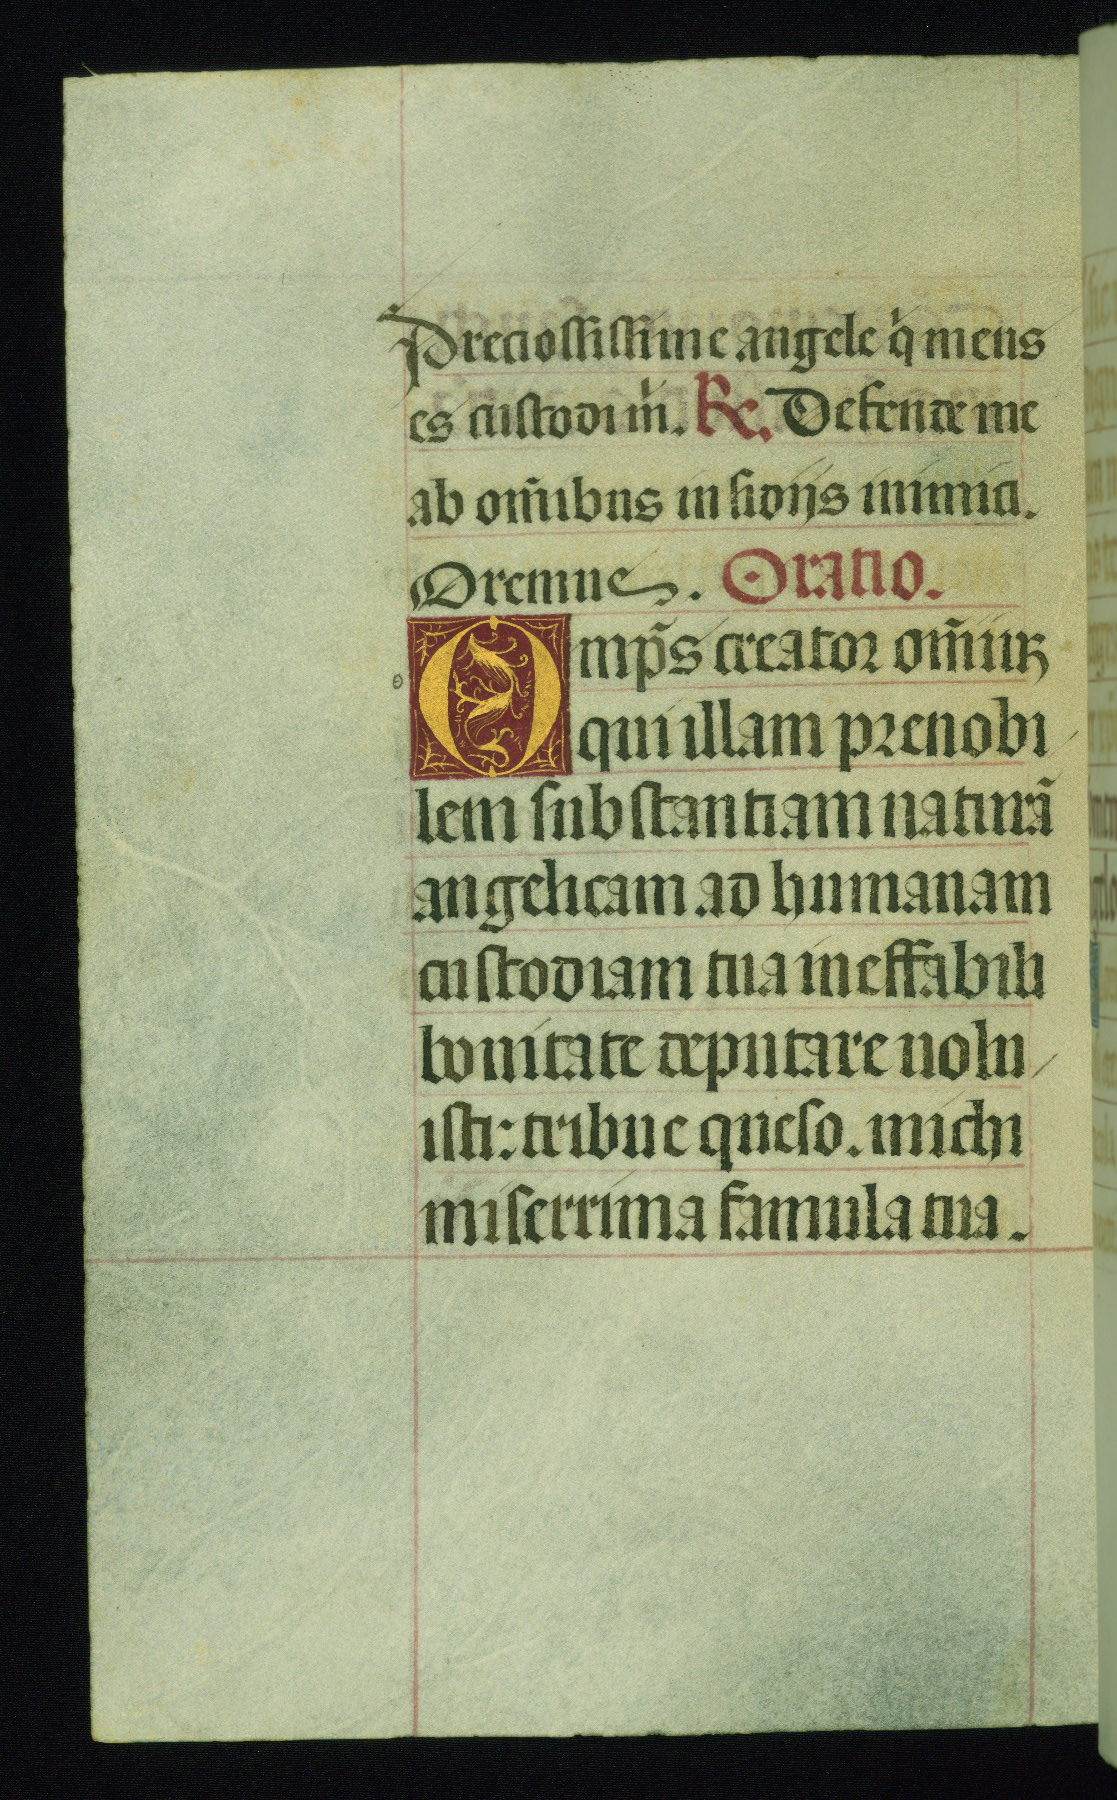 Preciossissime angele q̇ meus
es custodi m̃. Re. Defende me
ab om̃ibus insidijs inimici.
Oremus. Oratio.
Omp̃s creator om̃iuꝝ
qui illam prenobi
lem substantiam naturã
angelicam ad humanam
custodiam tua ineffabili
bonitate deputare nolu
isti: tribue queso. michi
miserrima famula tua.